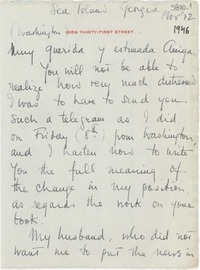 Sea Island Georgia
5800.1
Nov 12
1946
(Washington
THIRTY-FIRST STREET
Muy querida y estimada Amiga,
You will not be able to
realize how very much distressed
I was to have to send you
such a telegram as I did
on Friday (8th) from Washington,
and I hasten now to write
you the full meaning of
the change in my position
as regards the work on your
book.
My husband, who did not
want me to put the news in